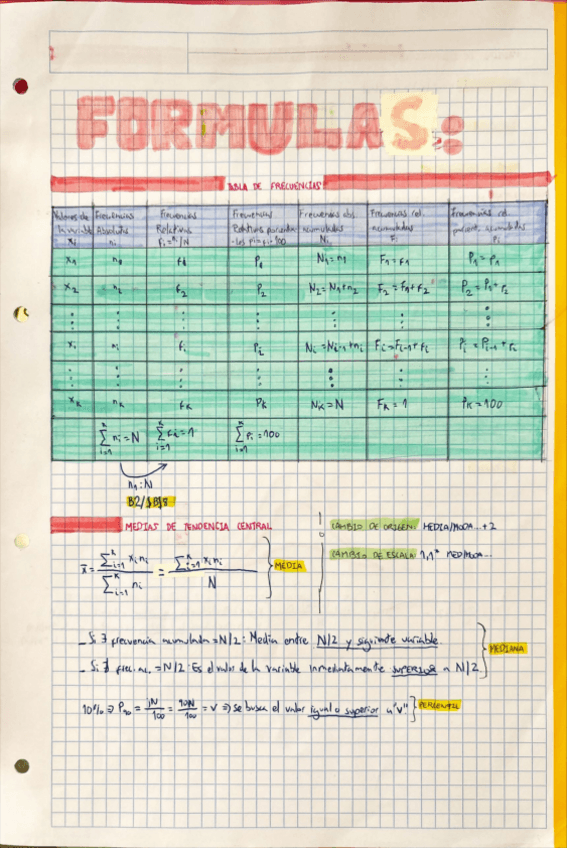 FORMULAS:
TABLA DE FRECUENCIAS
Valores de la variable xi | Frecuencias Absolutas ni | Frecuencias Relativas fi = ni/N | Frecuencias Relativas porcentuales pi = fi · 100 | Frecuencias abs. acumuladas Ni | Frecuencias rel. acumuladas Fi | Frecuencias rel. porcent. acumuladas Pi
x1 | n1 | f1 | P1 | N1 = n1 | F1 = f1 | P1 = p1
x2 | n2 | f2 | P2 | N2 = N1 + n2 | F2 = F1 + f2 | P2 = P1 + p2
⋮ | ⋮ | ⋮ | ⋮ | ⋮ | ⋮ | ⋮
xi | ni | fi | Pi | Ni = Ni-1 + ni | Fi = Fi-1 + fi | Pi = Pi-1 + pi
⋮ | ⋮ | ⋮ | ⋮ | ⋮ | ⋮ | ⋮
xk | nk | fk | Pk | Nk = N | Fk = 1 | Pk = 100
∑ᵏᵢ₌₁ ni = N | ∑ᵏᵢ₌₁ fi = 1 | ∑ᵏᵢ₌₁ Pi = 100
n1 : N
B2/$B$8
MEDIAS DE TENDENCIA CENTRAL
x̄ = ∑ᵏᵢ₌₁ xi ni / ∑ᵏᵢ₌₁ ni = ∑ᵏᵢ₌₁ xi ni / N } MEDIA
CAMBIO DE ORIGEN: MEDIA/MODA... + 2
CAMBIO DE ESCALA: 1,1* MED/MODA...
- Si ∃ frecuencia acumulada = N/2: Media entre N/2 y siguiente variable.
- Si ∄ frec. ac. = N/2: Es el valor de la variable inmediatamente SUPERIOR a N/2
} MEDIANA
10% ⇒ P10 = iN/100 = 10N/100 = v ⇒ se busca el valor igual o superior a "v" } PERCENTIL